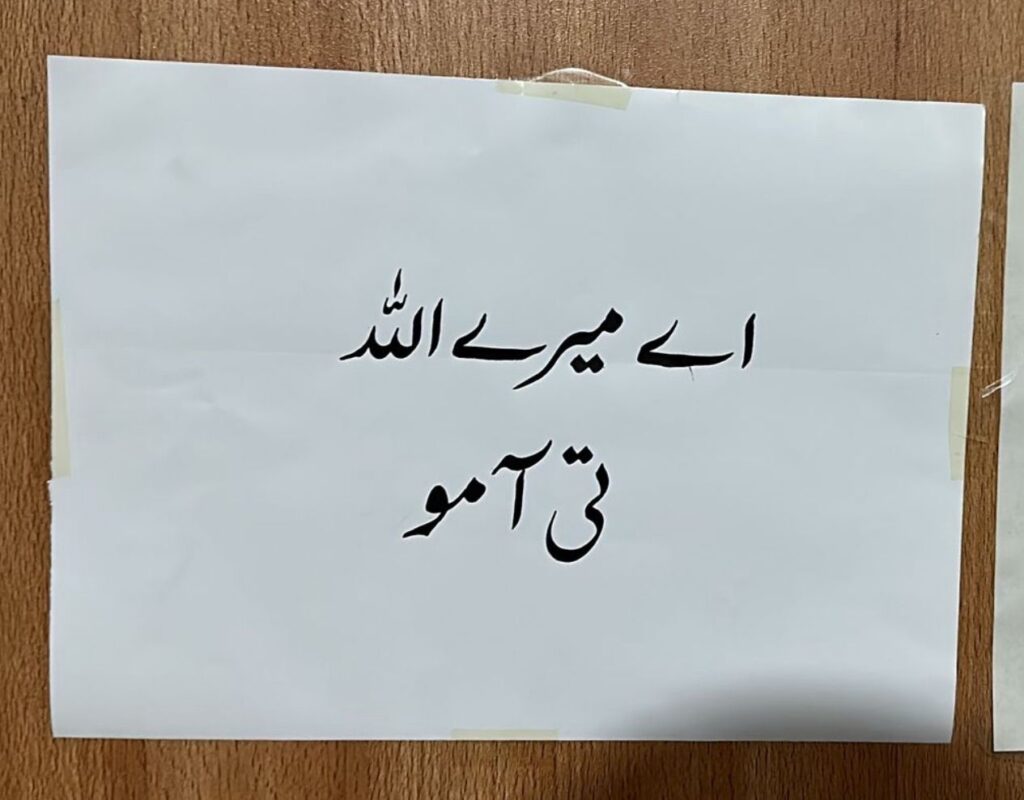 اے میرے اللہ
تی آمو